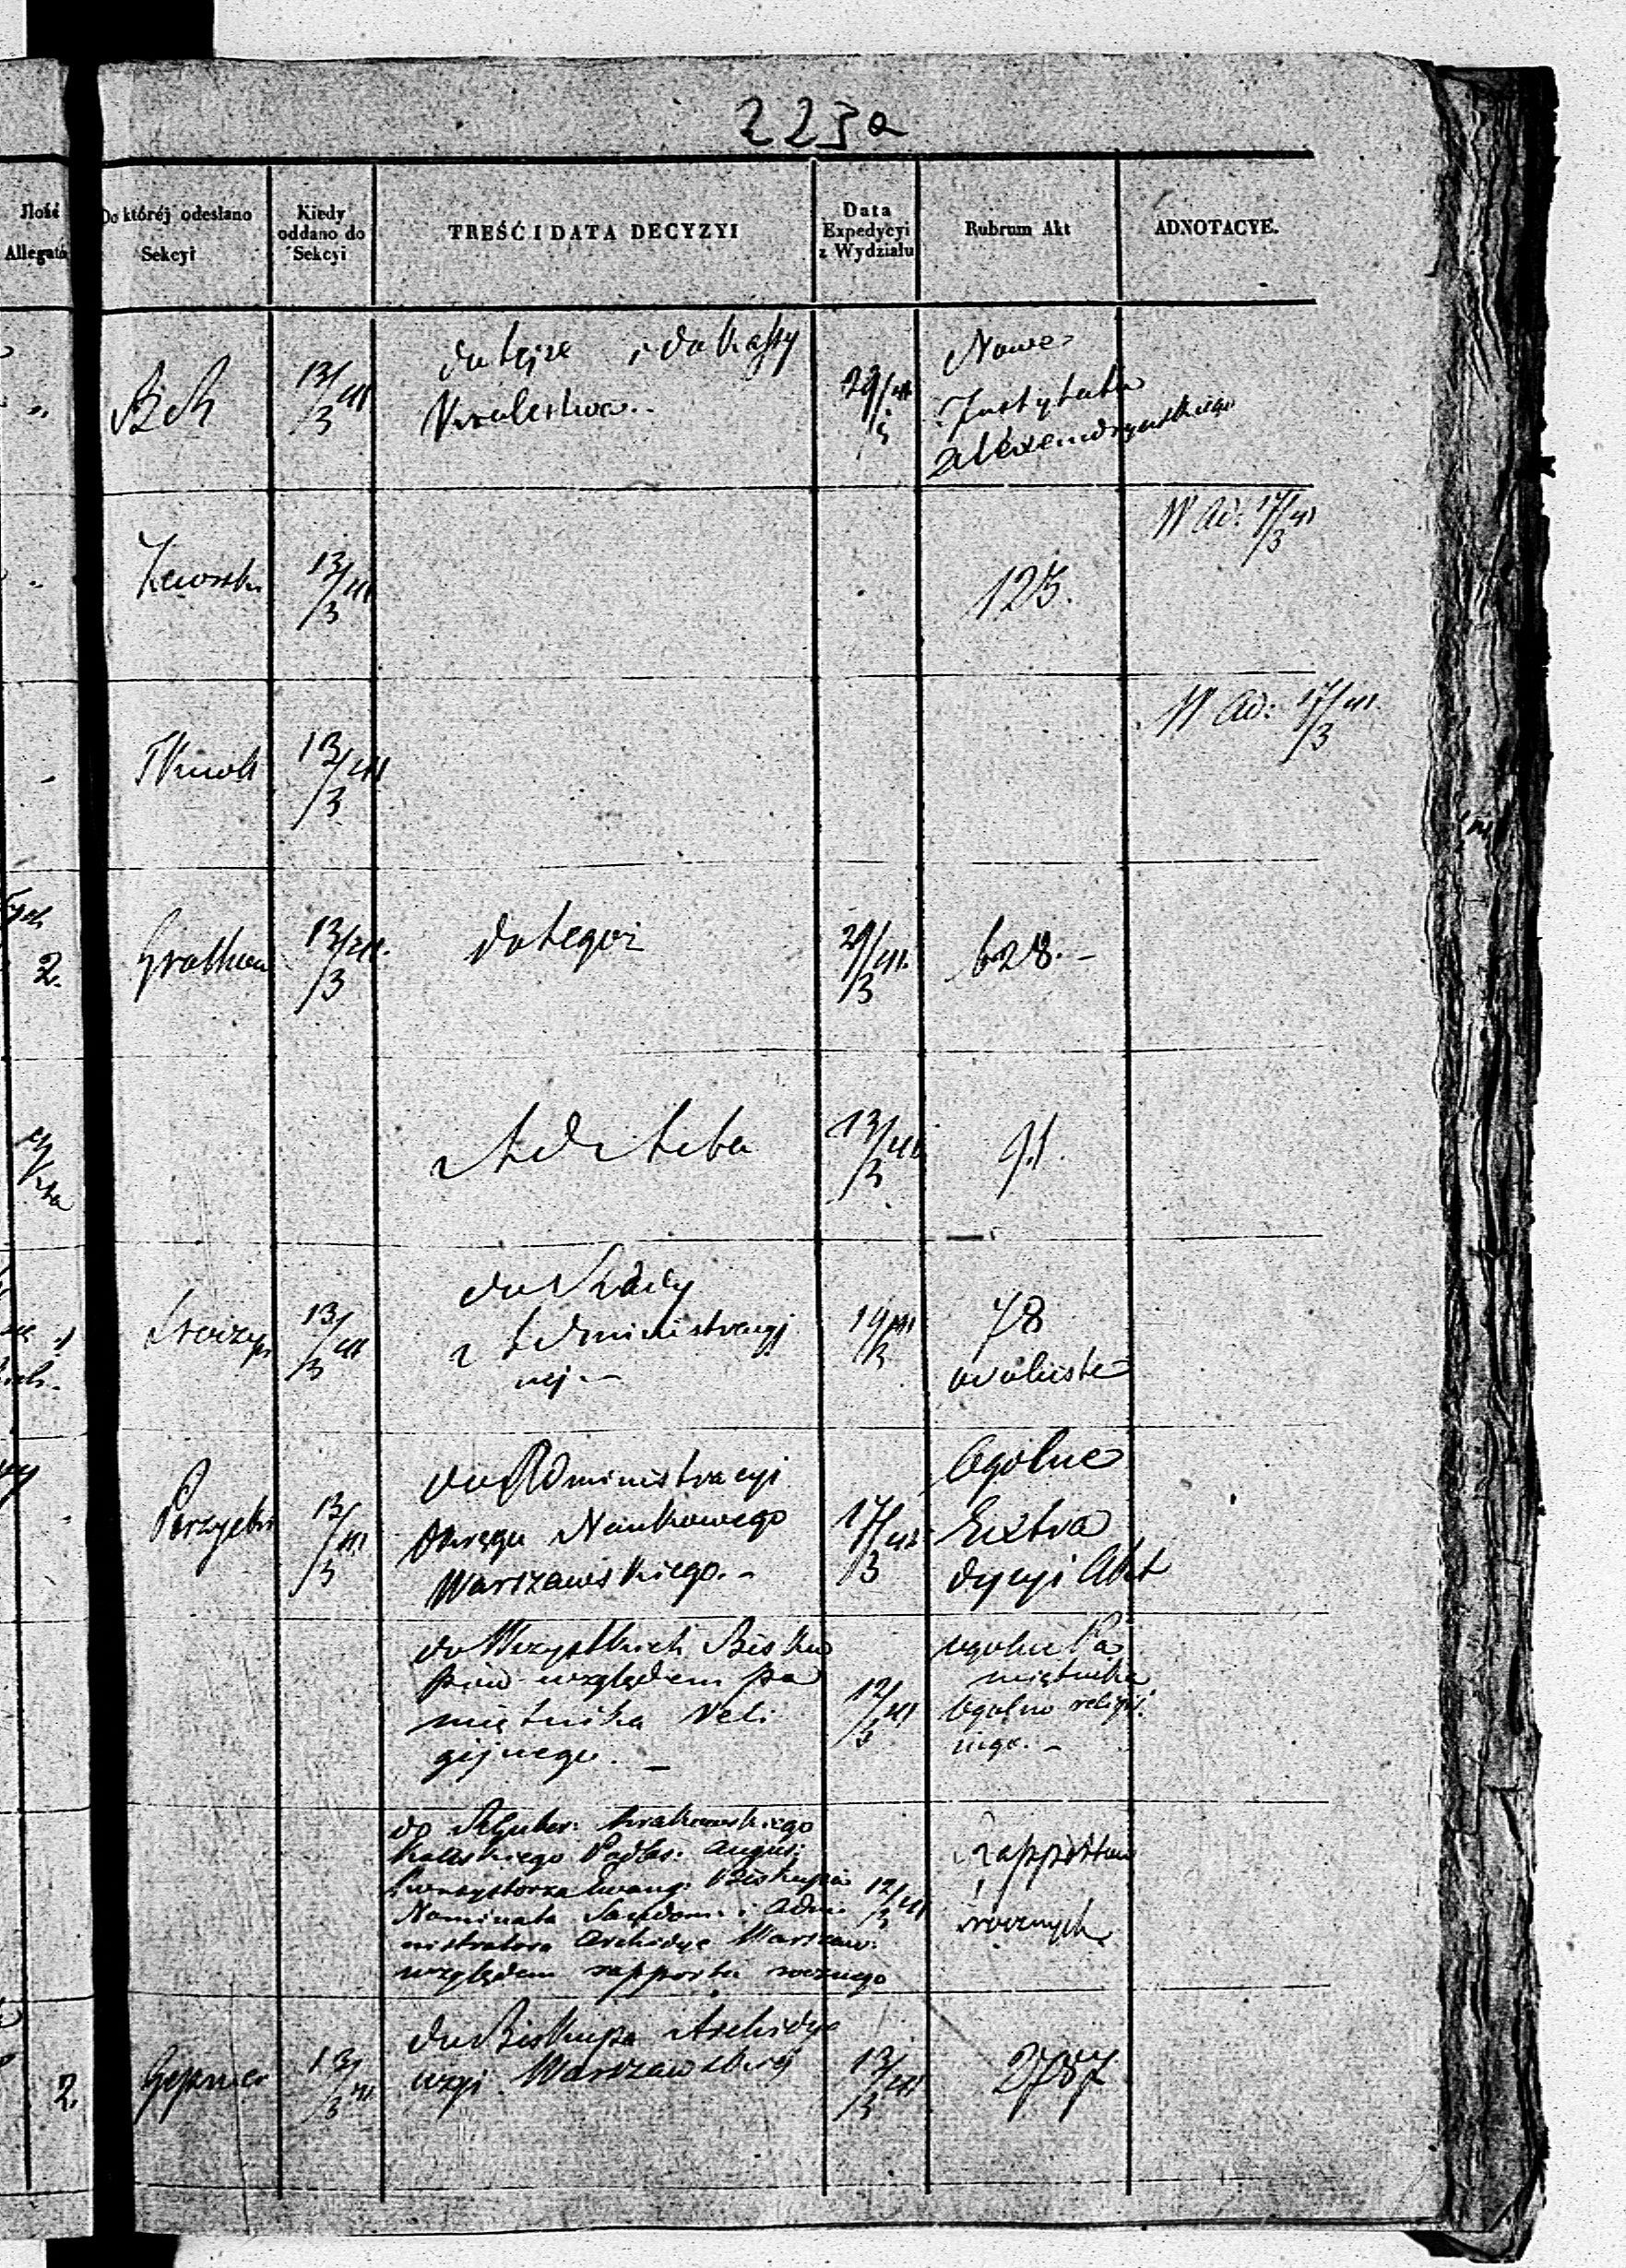 223a
Ilość
Allegató
Do któréj odesłano
Sekcyi
Kiedy
oddano do
Sekcyi
TREŚĆ I DATA DECYZYI
Data
Expedycyi
z Wydziału
Rubrum Akt
ADNOTACYE.
13/3 41
do tejże i do Kassy
Królestwa
29/3 41
Nowe
Instytutu
Alexandryjskiego
13/3 41
125.
W Ad: 17/3 41
13/3 41
W Ad: 17/3 41.
2.
13/3 41.
do tegoż
29/3 41.
628. -
Ad Acta
13/3 41
91.
13/3 41
do Rady
Administracyj
nej. -
19/3 41
78
13/3 41
do Administracyi
Okręgu Naukowego
Warszawskiego. -
17/3 41
Ogólne
Extra
dycyi Akt
do Wszystkich Bisku
pów względem pa
miętnika Reli
gijnego. -
12/3 41
ogólne Pa
miętnika
Ogólno religij
nego. -
do RGuber: Krakowskiego
Kaliskiego Podlas: August:
Konsystorza Ewang: Biskupa
Nominata Sandom: i Admi
nistratora Archidye Warszaw:
względem rapportu rocznego
12/3 41
Rapportów
rocznych
2.
Geppner
13/3 41
do Biskupa Archidye
cezyi Warszawskiej
13/3 41
2787